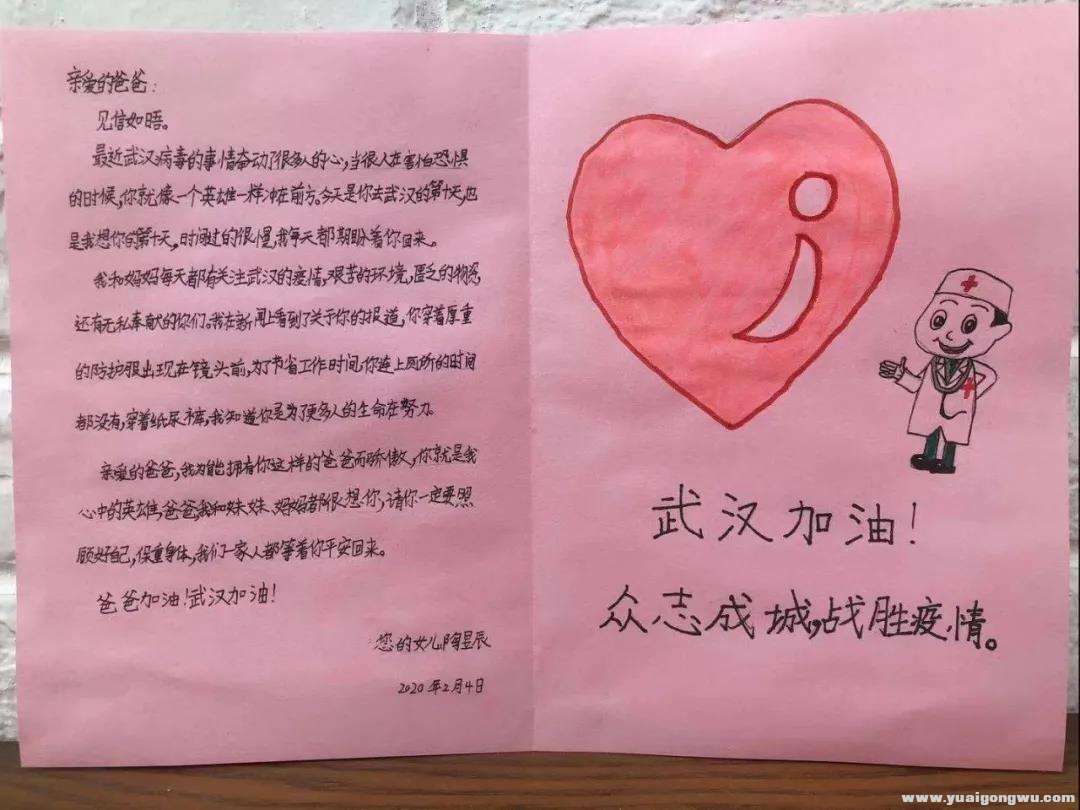 亲爱的爸爸：
见信如晤。
最近武汉病毒的事情牵动了很多人的心，当很人在害怕恐惧
的时候，你就像一个英雄一样冲在前方。今天是你去武汉的第十天，也
是我想你的第十天。时间过的很慢，我每天都期盼着你回来。
我和妈妈每天都有关注武汉的疫情，艰苦的环境，匮乏的物资，
还有无私奉献的你们。我在新闻上看到了关于你的报道，你穿着厚重
的防护服出现在镜头前，为了节省工作时间，你连上厕所的时间
都没有，穿着纸尿裤，我知道你是为了更多人的生命在努力。
亲爱的爸爸，我为能拥有你这样的爸爸而骄傲，你就是我
心中的英雄，爸爸，我和妹妹、妈妈都很想你，请你一定要照
顾好自己，保重身体，我们一家人都等着你平安回来。
爸爸加油！武汉加油！
您的女儿陶昱辰
2020年2月4日
武汉加油！
众志成城，战胜疫情。
www.yuaigongwu.com